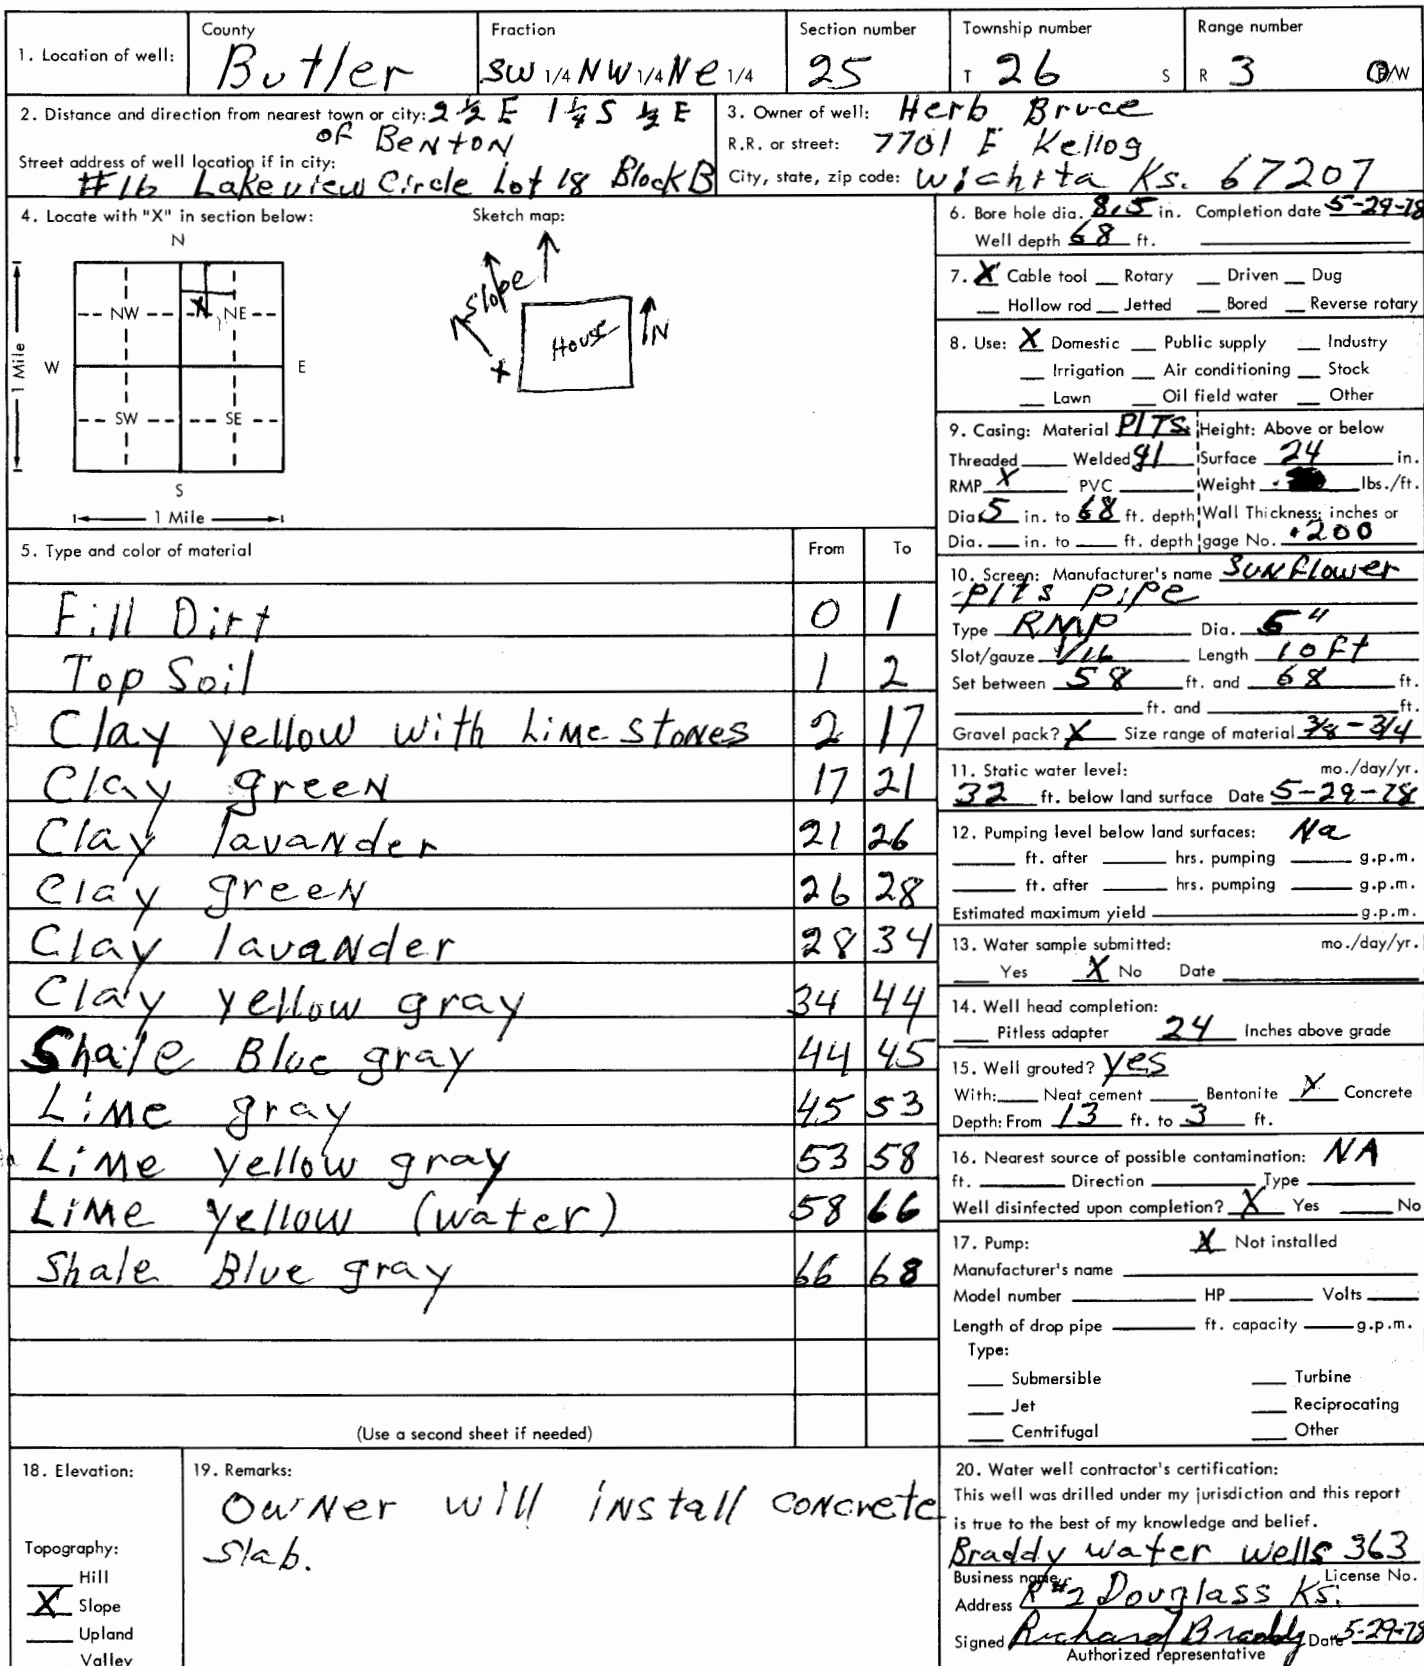 County Fraction Section number Township number Range number
1. Location of well: Butler SW 1/4 NW 1/4 NE 1/4 25 T 26 S R 3 E/W
2. Distance and direction from nearest town or city: 2 1/2 E 1 1/4 S 1/2 E
of Benton
Street address of well location if in city:
#16 Lakeview Circle Lot 18 Block B
3. Owner of well: Herb Bruce
R.R. or street: 7701 E Kellog
City, state, zip code: Wichita Ks. 67207
4. Locate with "X" in section below:
N
NW X NE
W E
SW SE
S
1 Mile
1 Mile
Sketch map:
Slope
House
N
X
5. Type and color of material From To
Fill Dirt 0 1
Top Soil 1 2
Clay yellow with Lime stones 2 17
Clay green 17 21
Clay lavander 21 26
Clay green 26 28
Clay lavander 28 34
Clay yellow gray 34 44
Shale Blue gray 44 45
Lime gray 45 53
Lime yellow gray 53 58
Lime yellow (water) 58 66
Shale Blue gray 66 68
(Use a second sheet if needed)
6. Bore hole dia. 8.5 in. Completion date 5-29-78
Well depth 68 ft.
7. X Cable tool __ Rotary __ Driven __ Dug
__ Hollow rod __ Jetted __ Bored __ Reverse rotary
8. Use: X Domestic __ Public supply __ Industry
__ Irrigation __ Air conditioning __ Stock
__ Lawn __ Oil field water __ Other
9. Casing: Material PITS Height: Above or below
Threaded ____ Welded gl Surface 24 in.
RMP X PVC ____ Weight ____ lbs./ft.
Dia. 5 in. to 68 ft. depth Wall Thickness: inches or
Dia. ___ in. to ___ ft. depth gage No. .200
10. Screen: Manufacturer's name Sunflower
pits pipe
Type RMP Dia. 5"
Slot/gauze 1/16 Length 10 ft
Set between 58 ft. and 68 ft.
____ ft. and ____ ft.
Gravel pack? X Size range of material 3/8-3/4
11. Static water level: mo./day/yr.
32 ft. below land surface Date 5-29-78
12. Pumping level below land surfaces: Na
____ ft. after ____ hrs. pumping ____ g.p.m.
____ ft. after ____ hrs. pumping ____ g.p.m.
Estimated maximum yield ____ g.p.m.
13. Water sample submitted: mo./day/yr.
__ Yes X No Date ____
14. Well head completion:
__ Pitless adapter 24 Inches above grade
15. Well grouted? yes
With: ___ Neat cement ___ Bentonite X Concrete
Depth: From 13 ft. to 3 ft.
16. Nearest source of possible contamination: NA
ft. ____ Direction ____ Type ____
Well disinfected upon completion? X Yes ___ No
17. Pump: X Not installed
Manufacturer's name ____
Model number ____ HP ____ Volts ____
Length of drop pipe ____ ft. capacity ____ g.p.m.
Type:
__ Submersible __ Turbine
__ Jet __ Reciprocating
__ Centrifugal __ Other
18. Elevation:
Topography:
__ Hill
X Slope
__ Upland
__ Valley
19. Remarks:
Owner will install concrete
Slab.
20. Water well contractor's certification:
This well was drilled under my jurisdiction and this report
is true to the best of my knowledge and belief.
Braddy water wells 363
Business name License No.
Address R#2 Douglass Ks.
Signed Richard Braddy Date 5-29-78
Authorized representative